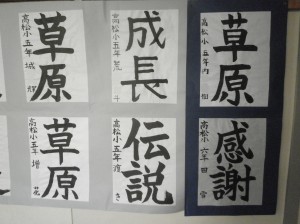 草原
高松小五年
成長
高松小五年
草原
高松小五年
草原
高松小五年
伝説
高松小五年
感謝
高松小六年